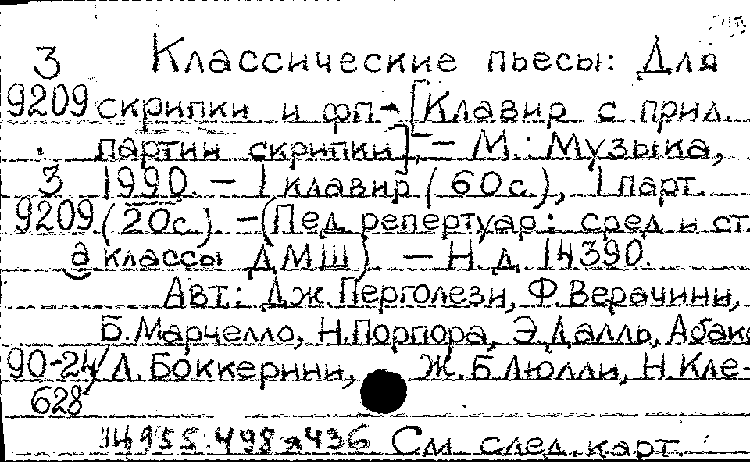 З Классические пьесы: Для
9209 скрипки и фп. - [Клавир с прил.
партии скрипки]. - М.: Музыка,
З 1990. - 1 клавир (60 с.), 1 парт.
9209 (20 с.) - (Пед. репертуар: сред. и ст.
а классы ДМШ). - Н. д. 14390.
Авт.: Дж. Перголези, Ф. Верачини,
Б. Марчелло, Н. Порпора, Э. Далль, Абако
90-24/ Л. Боккерини, Ж. Б. Люлли, Н. Кле-
628
См. след. карт.